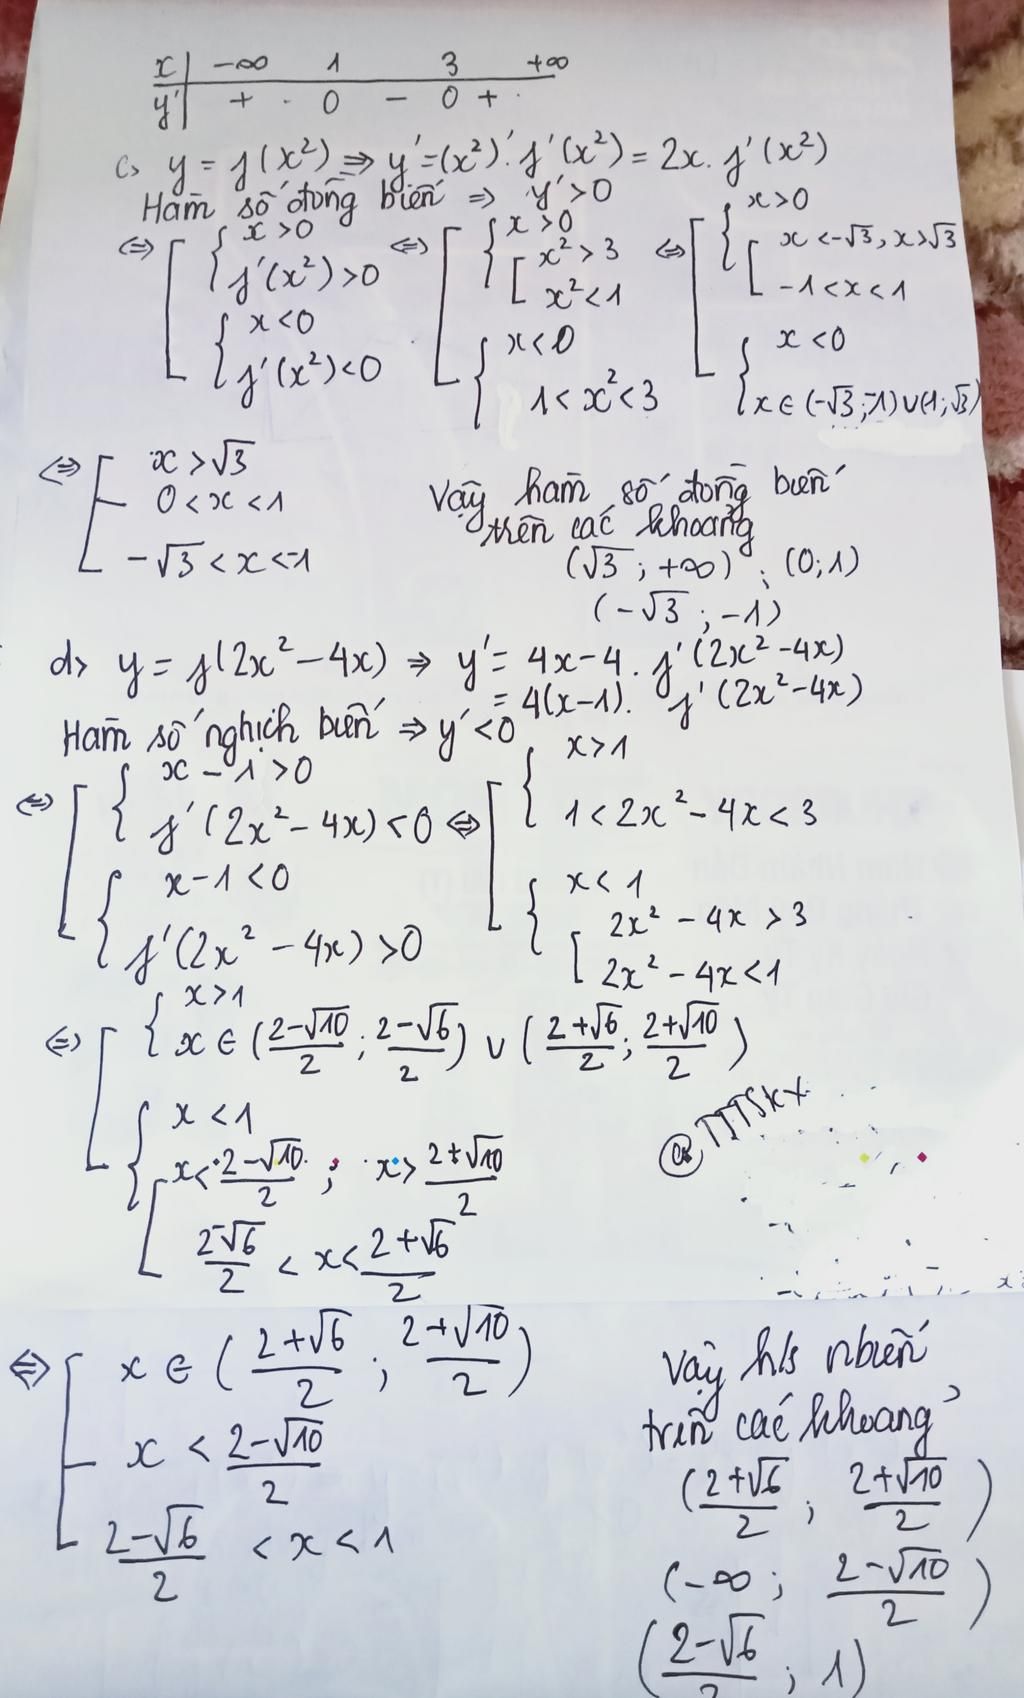 x | -∞ 1 3 +∞
y' | + 0 - 0 +
c, y = f(x²) ⇒ y' = (x²)'. f'(x²) = 2x. f'(x²)
Hàm số đồng biến ⇒ y' > 0
⇔ [ { x > 0 ⇔ [ { x > 0 ⇔ [ { x > 0
f'(x²) > 0 [ x² > 3 [ x < -√3, x > √3
x² < 1 -1 < x < 1
{ x < 0 { x < 0 { x < 0
f'(x²) < 0 1 < x² < 3 x ∈ (-√3; -1) ∪ (1; √3)
⇔ [ x > √3
0 < x < 1
-√3 < x < -1
Vậy hàm số đồng biến
trên các khoảng
(√3; +∞); (0; 1)
(-√3; -1)
d, y = f(2x² - 4x) ⇒ y' = 4x - 4. f'(2x² - 4x)
= 4(x - 1). f'(2x² - 4x)
Hàm số nghịch biến ⇒ y' < 0
⇔ [ { x - 1 > 0 ⇔ [ { x > 1
f'(2x² - 4x) < 0 1 < 2x² - 4x < 3
{ x - 1 < 0 { x < 1
f'(2x² - 4x) > 0 [ 2x² - 4x > 3
2x² - 4x < 1
⇔ [ { x > 1
x ∈ ((2-√10)/2; (2-√6)/2) ∪ ((2+√6)/2; (2+√10)/2)
{ x < 1
[ x < (2-√10)/2; x > (2+√10)/2
(2-√6)/2 < x < (2+√6)/2
⇔ [ x ∈ ((2+√6)/2; (2+√10)/2)
x < (2-√10)/2
(2-√6)/2 < x < 1
Vậy h/s nbiến
trên các khoảng
((2+√6)/2; (2+√10)/2)
(-∞; (2-√10)/2)
((2-√6)/2; 1)